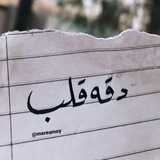 دقه قلب
@marsamay